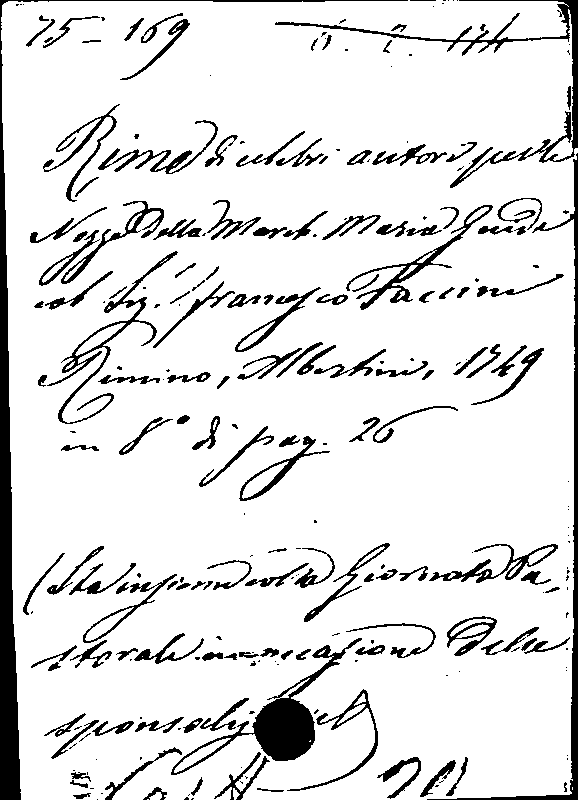 75 - 169 6. 2. 174
Rime di celebri autori per le
Nozze della March. Maria Guidi
col Sig.r Francesco Paccini
Rimino, Albertini, 1749
in 8° di pag. 26
(Sta insieme colla Giornata Pa-
storale in occasione delle
sponsalizie